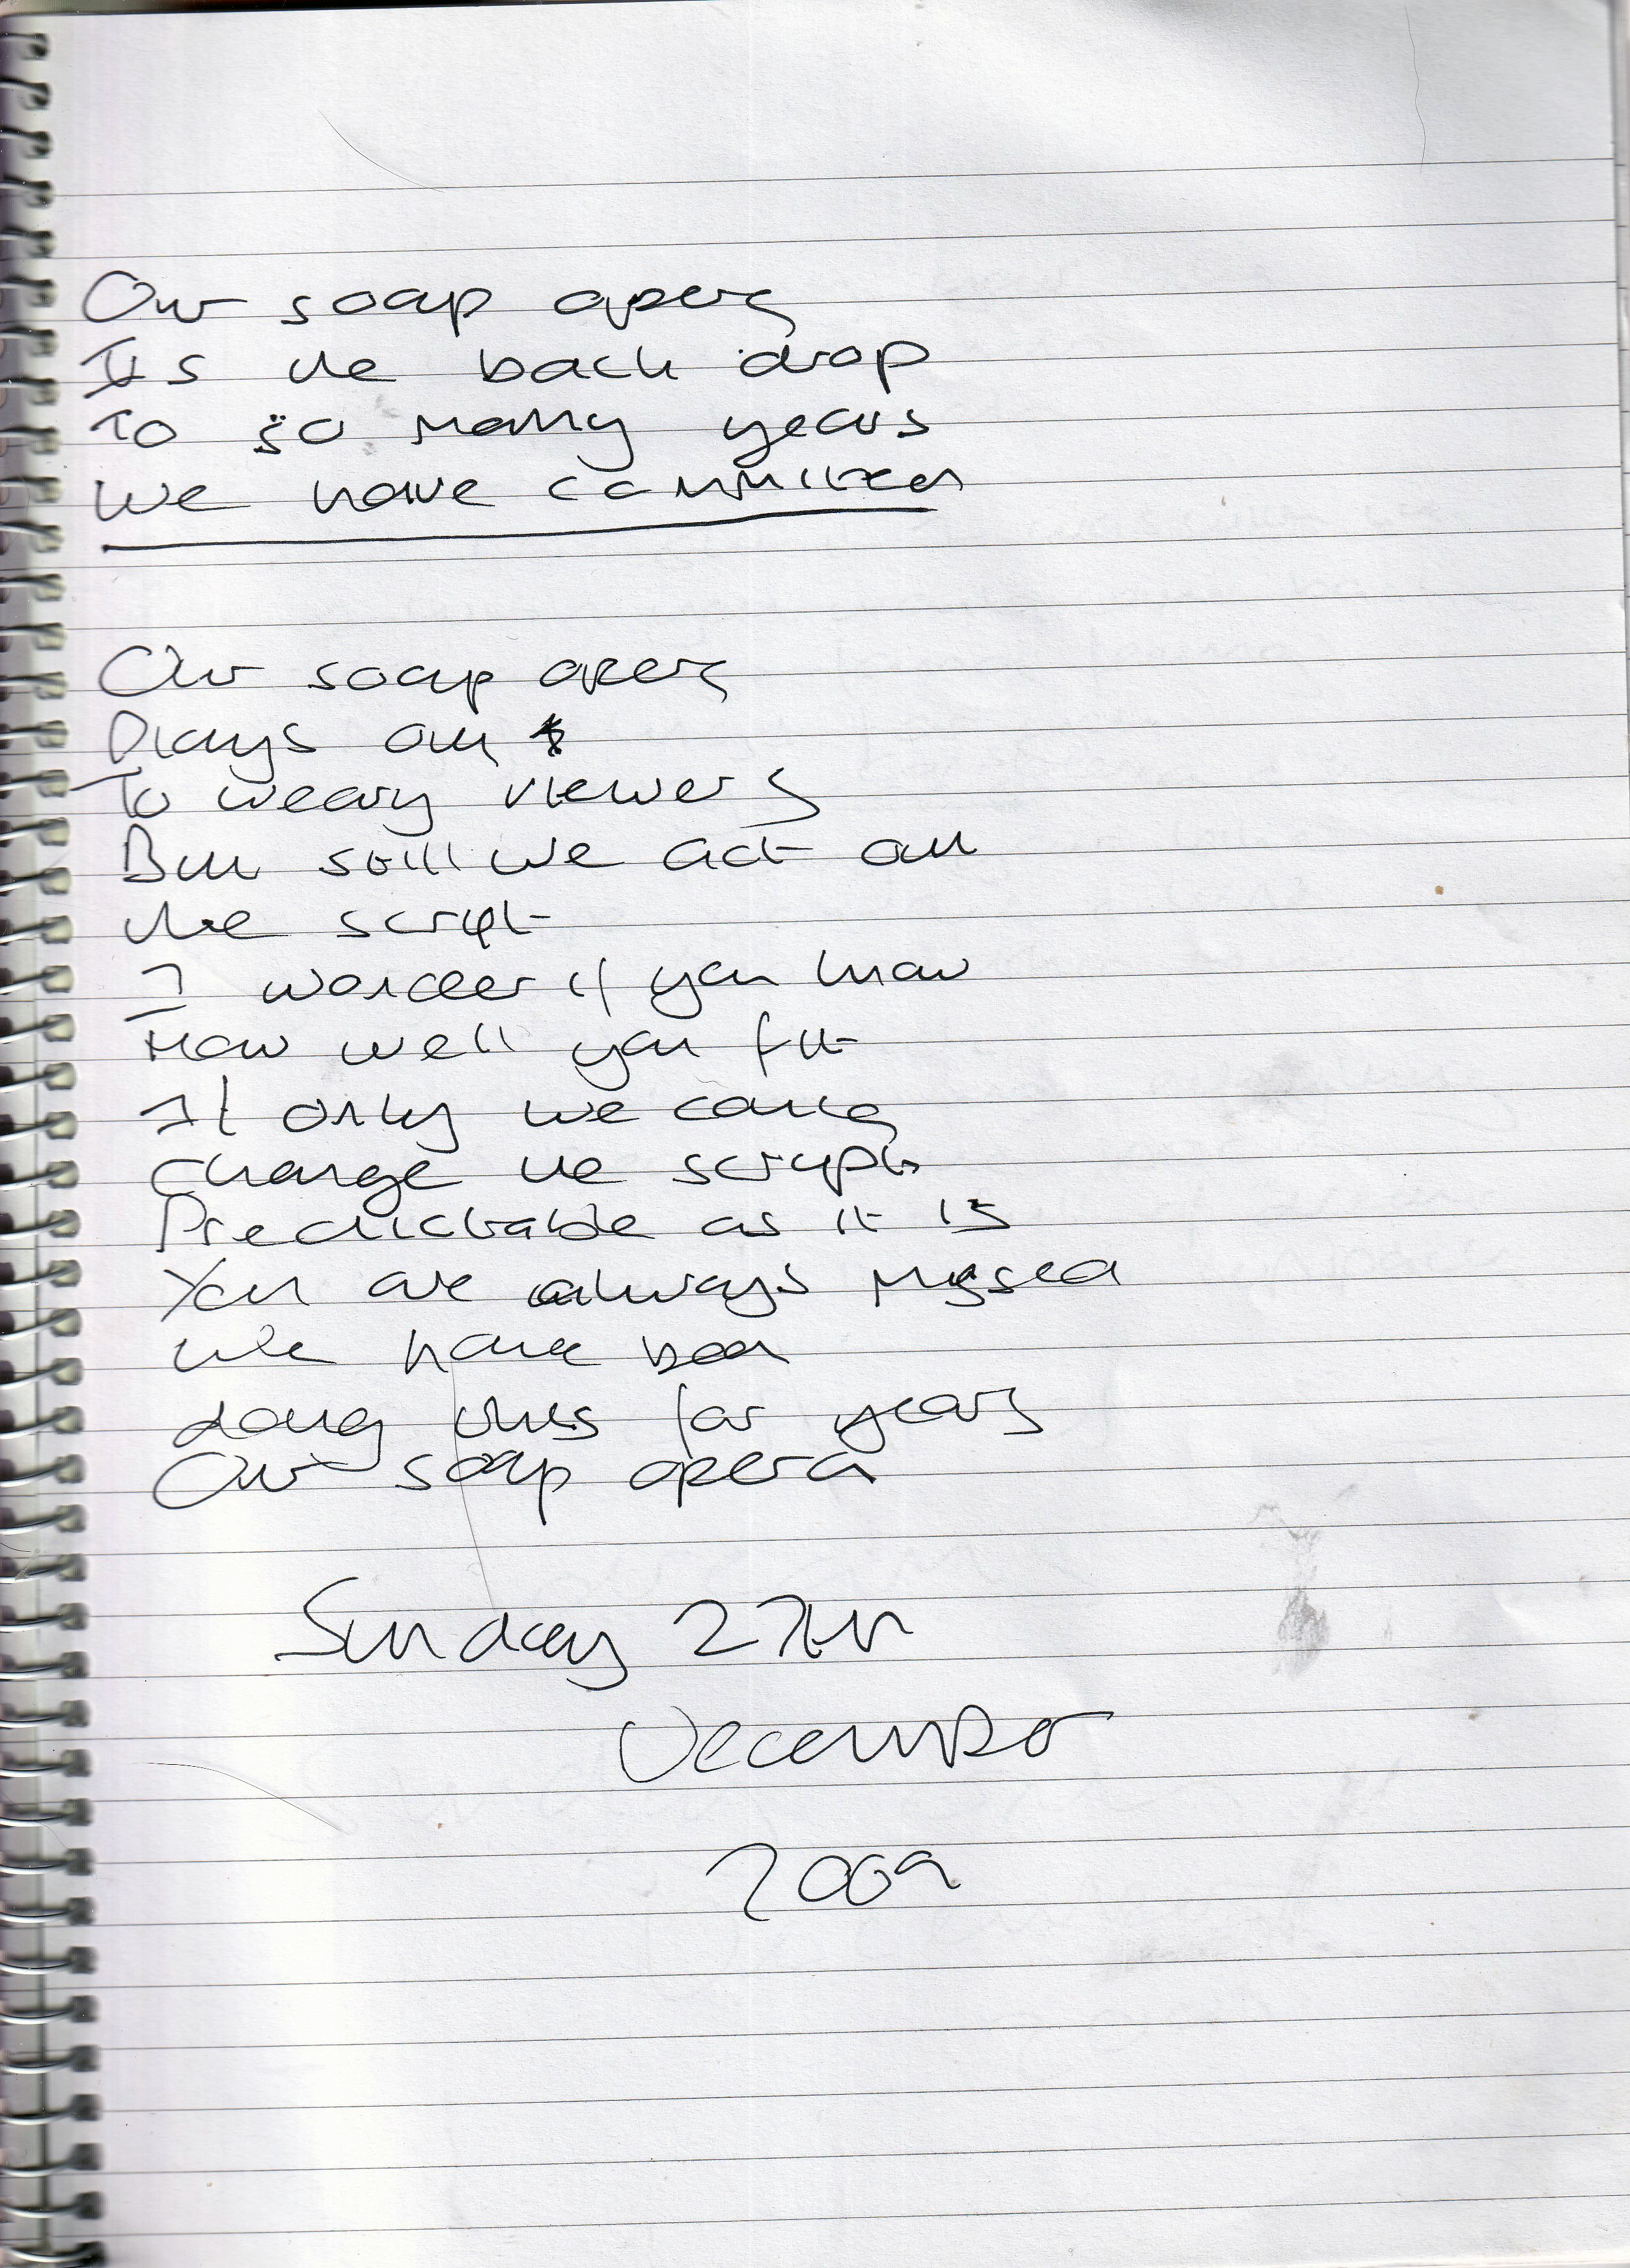 Our soap opera
Its the back drop
To so many years
We have committed
Our soap opera
Plays on
To weary viewers
But still we act out
the script
I wonder if you know
How well you fit
If only we could
change the script
Predictable as it is
You are always
We have been
doing this for years
Our soap opera
Sunday 27th
December
2009